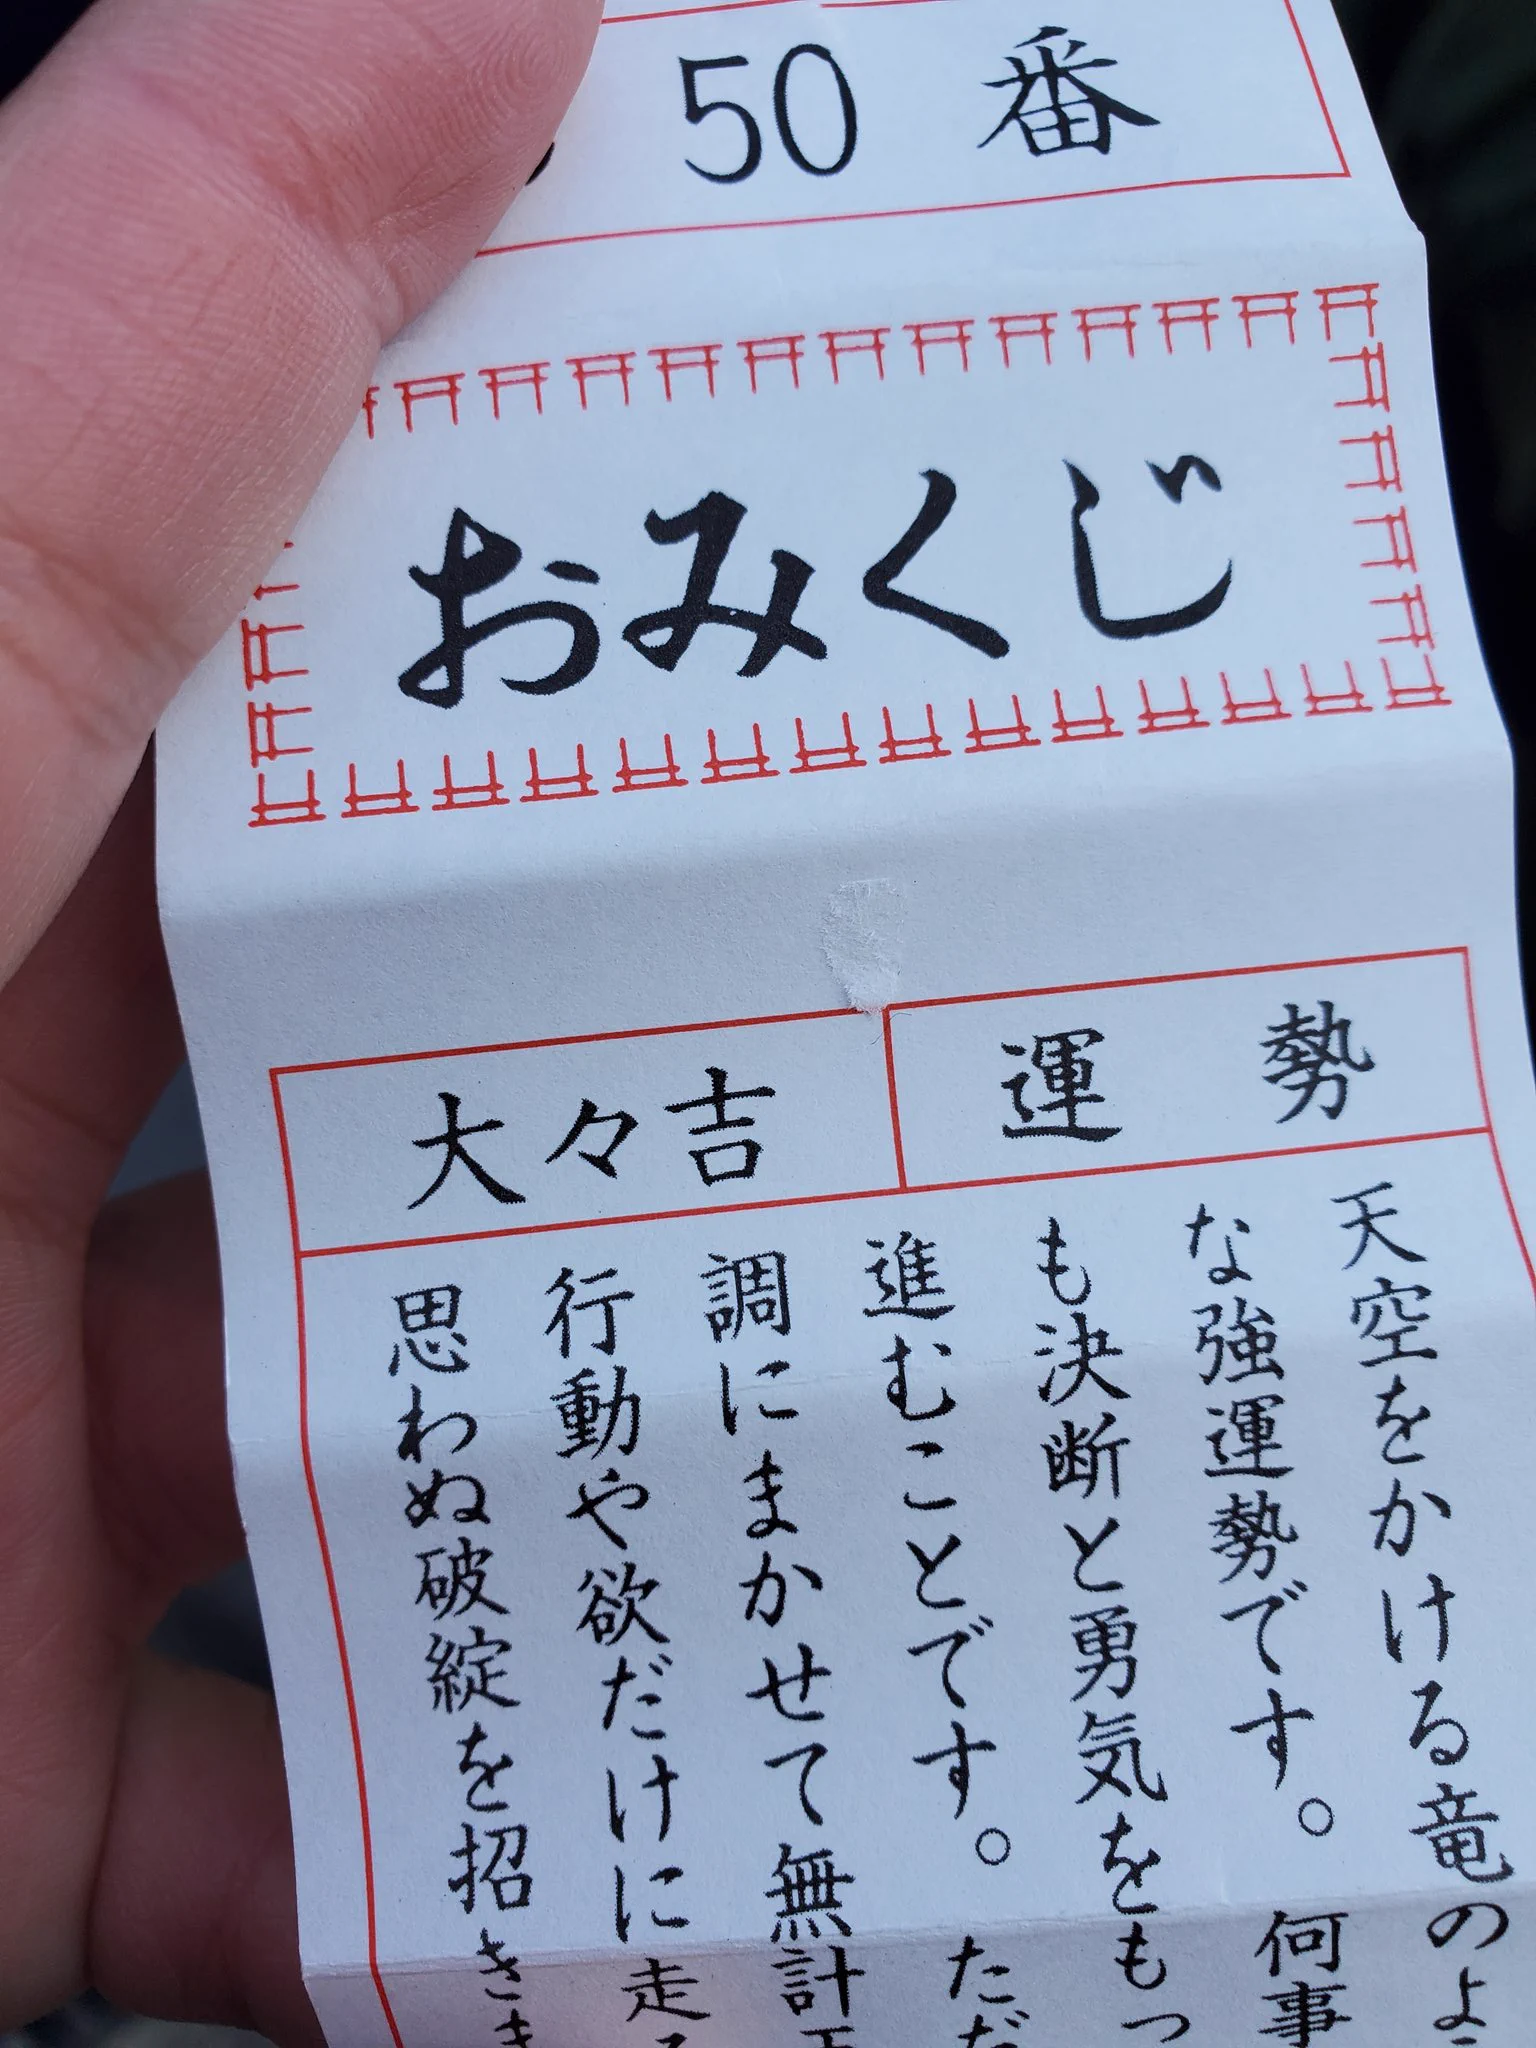 50番
おみくじ
運勢
大々吉
天空をかける竜のよ
な強運勢です。何事
も決断と勇気をもっ
進むことです。ただ
調にまかせて無計
行動や欲だけに走
思わぬ破綻を招きま